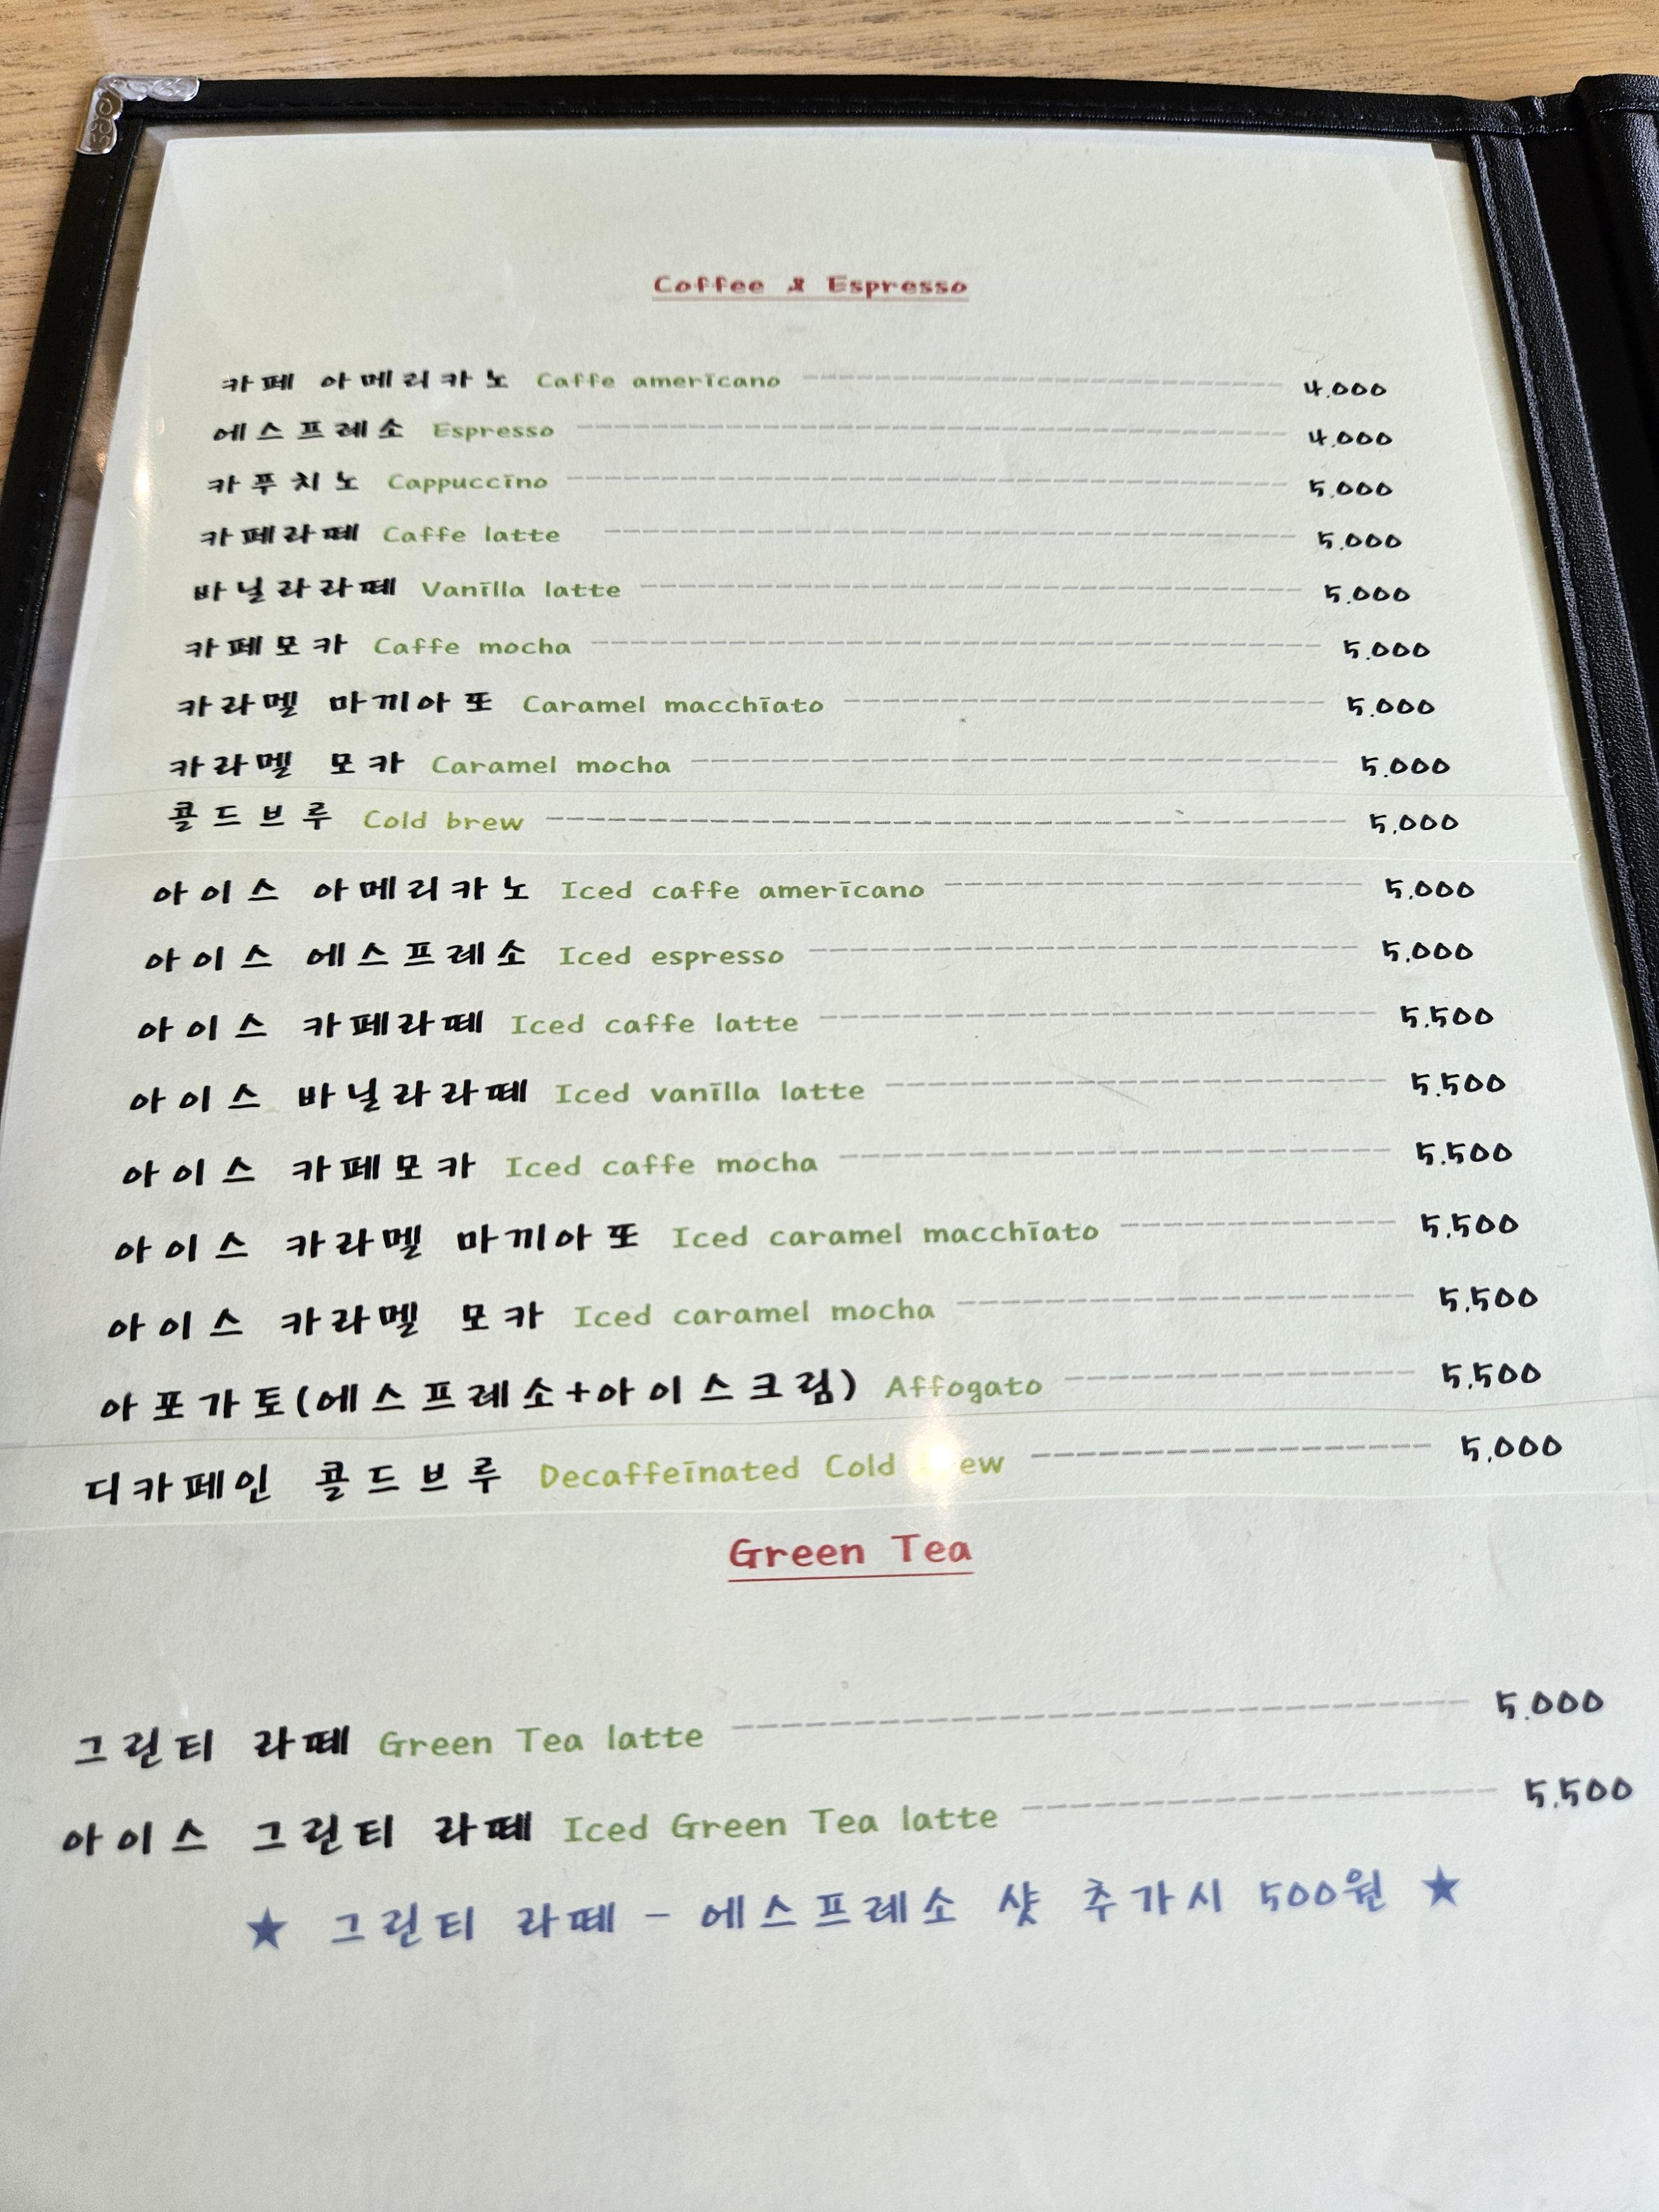 Coffee & Espresso
카페 아메리카노 Caffe americano 4,000
에스프레소 Espresso 4,000
카푸치노 Cappuccino 5,000
카페라떼 Caffe latte 5,000
바닐라라떼 Vanilla latte 5,000
카페모카 Caffe mocha 5,000
카라멜 마끼아또 Caramel macchiato 5,000
카라멜 모카 Caramel mocha 5,000
콜드브루 Cold brew 5,000
아이스 아메리카노 Iced caffe americano 5,000
아이스 에스프레소 Iced espresso 5,000
아이스 카페라떼 Iced caffe latte 5,500
아이스 바닐라라떼 Iced vanilla latte 5,500
아이스 카페모카 Iced caffe mocha 5,500
아이스 카라멜 마끼아또 Iced caramel macchiato 5,500
아이스 카라멜 모카 Iced caramel mocha 5,500
아포가토(에스프레소+아이스크림) Affogato 5,500
디카페인 콜드브루 Decaffeinated Cold 5,000
Green Tea
그린티 라떼 Green Tea latte 5,000
아이스 그린티 라떼 Iced Green Tea latte 5,500
★ 그린티 라떼 - 에스프레소 샷 추가시 500원 ★